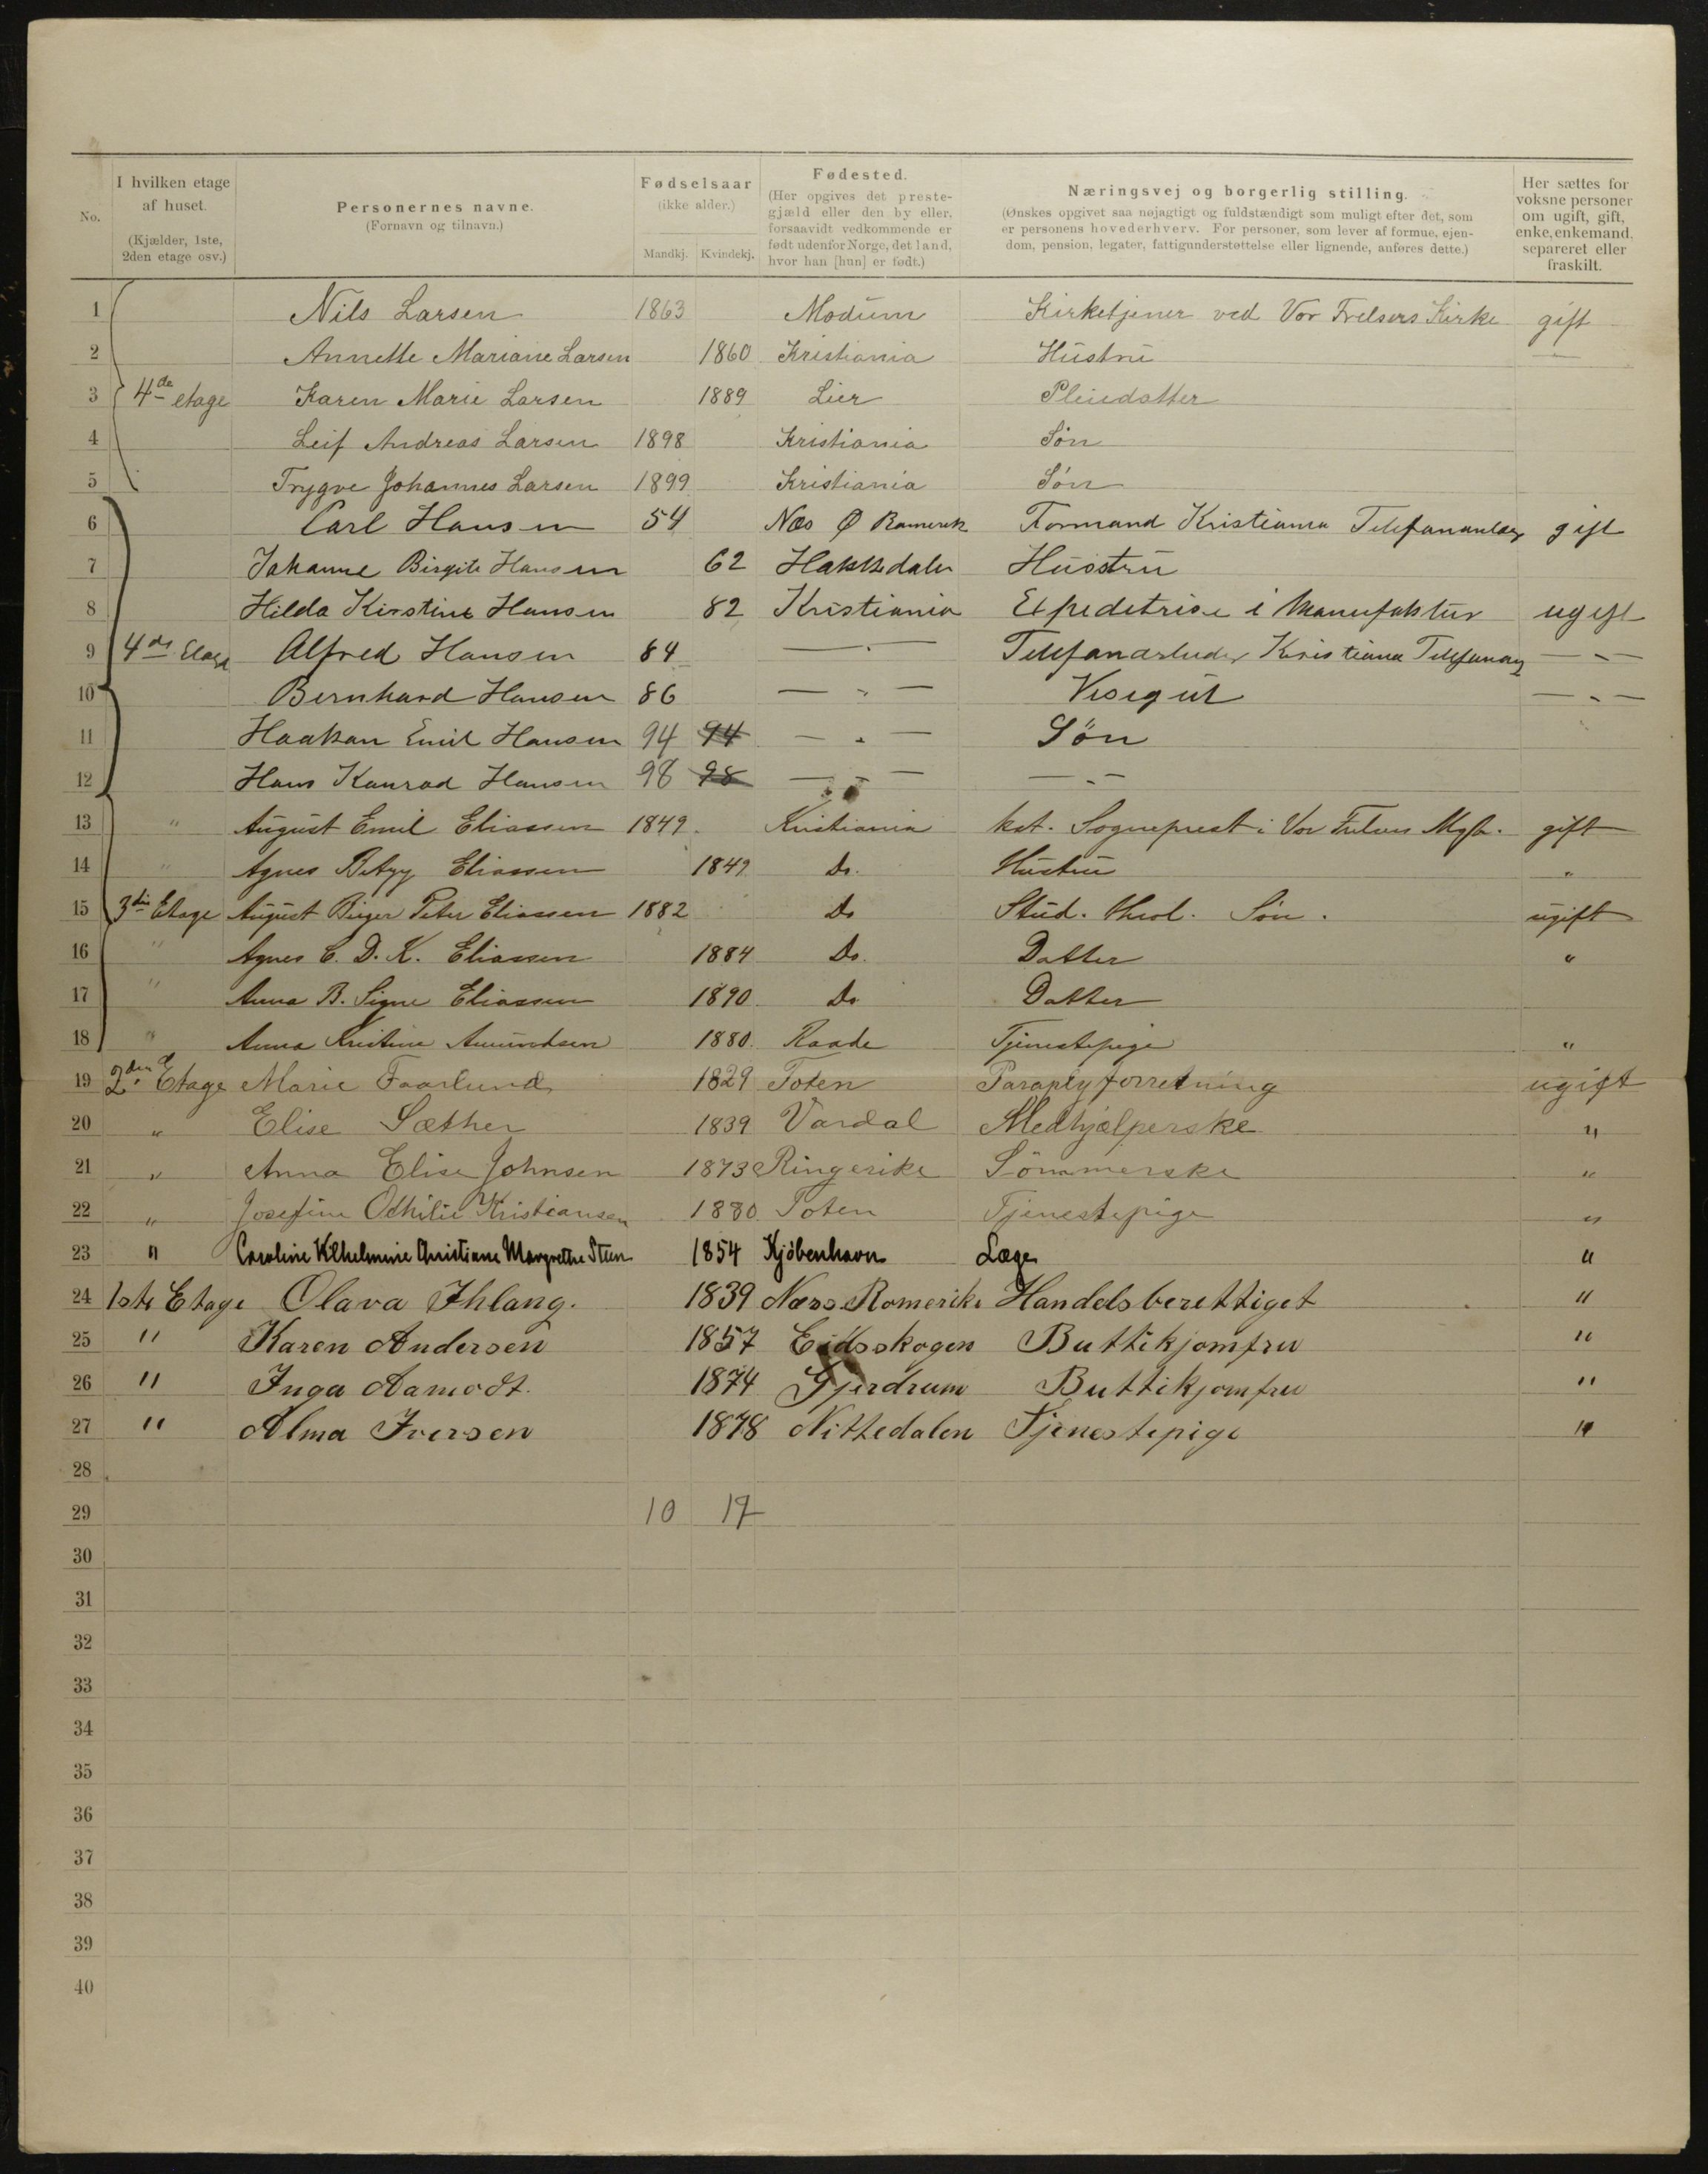 No. I hvilken etage af huset. (Kjælder, 1ste, 2den etage osv.) Personernes navne. (Fornavn og tilnavn.) Fødselsaar (ikke alder.) Mandkj. Kvindekj. Fødested. (Her opgives det prestegjæld eller den by eller, forsaavidt vedkommende er født udenfor Norge, det land, hvor han [hun] er født.) Næringsvej og borgerlig stilling. (Ønskes opgivet saa nøjagtigt og fuldstændigt som muligt efter det, som er personens hovederhverv. For personer, som lever af formue, ejendom, pension, legater, fattigunderstøttelse eller lignende, anføres dette.) Her sættes for voksne personer om ugift, gift, enke, enkemand, separeret eller fraskilt.
1 Nils Larsen 1863 Modum Kirketjener ved Vor Frelsers Kirke gift
2 Annette Mariane Larsen 1860 Kristiania Hustru —"—
3 4de etage Karen Marie Larsen 1889 Lier Pleiedatter
4 Leif Andreas Larsen 1898 Kristiania Søn
5 Trygve Johannes Larsen 1899 Kristiania Søn
6 Carl Hansen 54 Næs Ø Romerik Formand Kristiania Telefonanlæg gift
7 Johanne Birgite Hansen 62 Hakkedalen Husstru
8 Hilda Kirstine Hansen 82 Kristiania Expeditrise i Manufaktur ugift
9 4de Etage Alfred Hansen 84 —"— Telefonarbeider Kristiania Telefonanlæg —"—
10 Bernhard Hansen 86 —"— Visegut —"—
11 Haakon Emil Hansen 94 94 —"— Søn
12 Hans Konrad Hansen 98 98 —"— —"—
13 " August Emil Eliassen 1849. Kristiania kst. Sogneprest i Vor Frelsers Mgh. gift
14 " Agnes Betzy Eliassen 1849 Do. Hustru "
15 3die Etage August Birger Peter Eliassen 1882 Do Stud. theol. Søn. ugift
16 " Agnes C. D. K. Eliassen 1884 Do. Datter "
17 " Anna B. Signe Eliassen 1890. Do Datter
18 " Anna Kristine Amundsen 1880. Raade Tjenestepige "
19 2den Etage Marie Faarlund 1829 Toten Paraplyforretning ugift
20 " Elise Sæther 1839 Vardal Medhjælperske "
21 " Anna Elise Johnsen 1873 Ringerike Sömmerske "
22 " Josefine Othilie Kristiansen 1880. Toten Tjenestepige "
23 " Caroline Vilhelmine Christiane Margrethe Steen 1854 Kjöbenhavn Læge "
24 1ste Etage Olava Ihlang. 1839 Næss Romerike Handelsberettiget "
25 " Karen Andersen 1857 Eidsskogen Buttikjomfru "
26 " Inga Aamodt. 1874 Gjerdrum Buttikjomfru "
27 " Alma Iversen 1878 Nittedalen Tjenestepige "
28
29 10 17
30
31
32
33
34
35
36
37
38
39
40